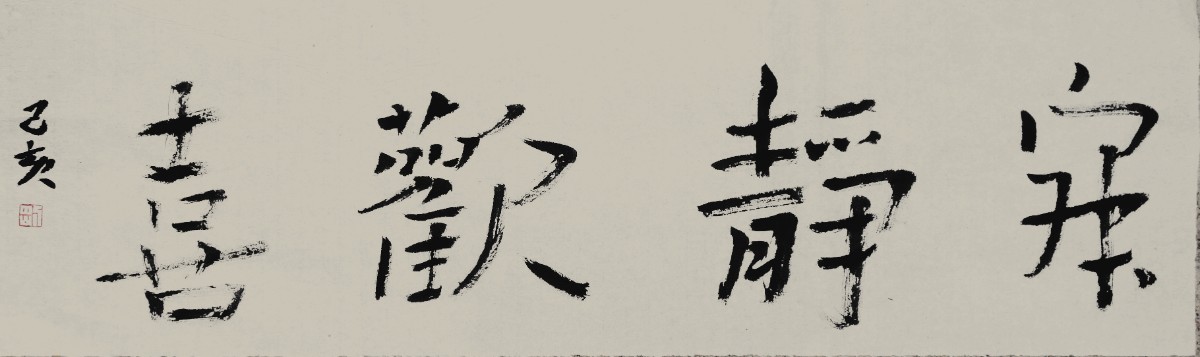 寂靜歡喜
己亥